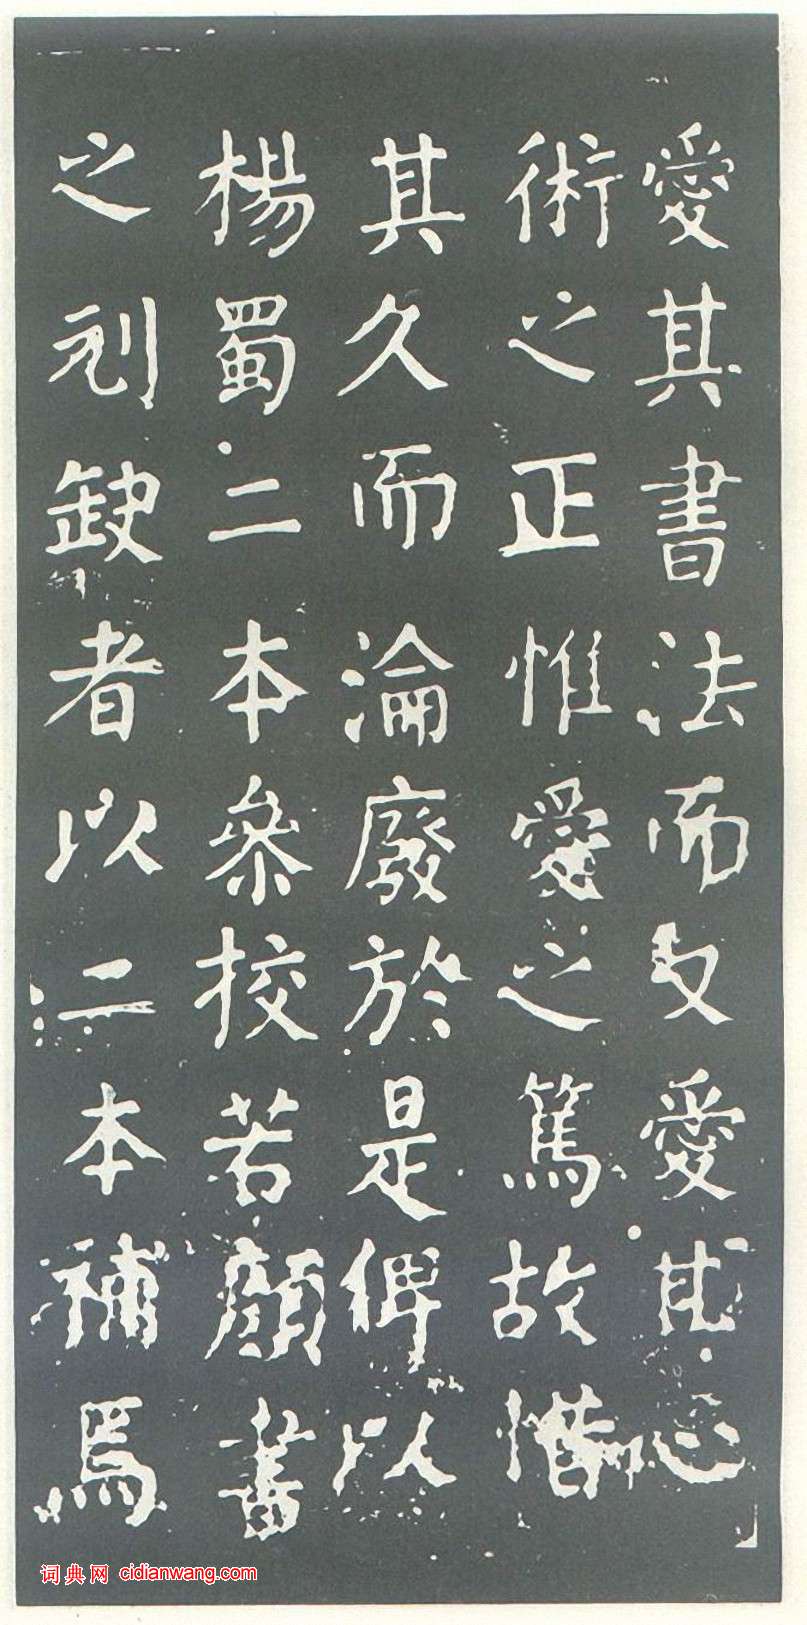 愛其書法而又愛其心
術之正惟愛之篤故惜
其久而淪廢於是俾以
楊蜀二本叅挍若顏書
之刓缺者以二本補焉
词典网 cidianwang.com